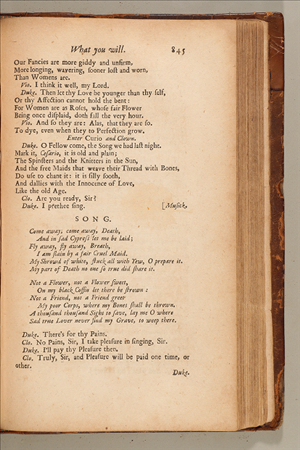 What you will. 845
Our Fancies are more giddy and unfirm,
More longing, wavering, sooner lost and worn,
Than Womens are.
Vio. I think it well, my Lord.
Duke. Then let thy Love be younger than thy self,
Or thy Affection cannot hold the bent:
For Women are as Roses, whose fair Flower
Being once displaid, doth fall the very hour.
Vio. And so they are: Alas, that they are so,
To dye, even when they to Perfection grow.
Enter Curio and Clown.
Duke. O Fellow come, the Song we had last night.
Mark it, Cesario, it is old and plain;
The Spinsters and the Knitters in the Sun,
And the free Maids that weave their Thread with Bones,
Do use to chant it: it is silly sooth,
And dallies with the Innocence of Love,
Like the old Age.
Clo. Are you ready, Sir?
Duke. I prethee sing. [Musick.
SONG.
Come away, come away, Death,
And in sad Cypress let me be laid;
Fly away, fly away, Breath,
I am slain by a fair Cruel Maid.
My Shrowd of white, stuck all with Yew, O prepare it.
My part of Death no one so true did share it.
Not a Flower, not a Flower sweet,
On my black Coffin let there be strown:
Not a Friend, not a Friend greet
My poor Corps, where my Bones shall be thrown.
A thousand thousand Sighs to save, lay me O where
Sad true Lover never find my Grave, to weep there.
Duke. There's for thy Pains.
Clo. No Pains, Sir, I take pleasure in singing, Sir.
Duke. I'll pay thy Pleasure then.
Clo. Truly, Sir, and Pleasure will be paid one time, or
other.
Duke.